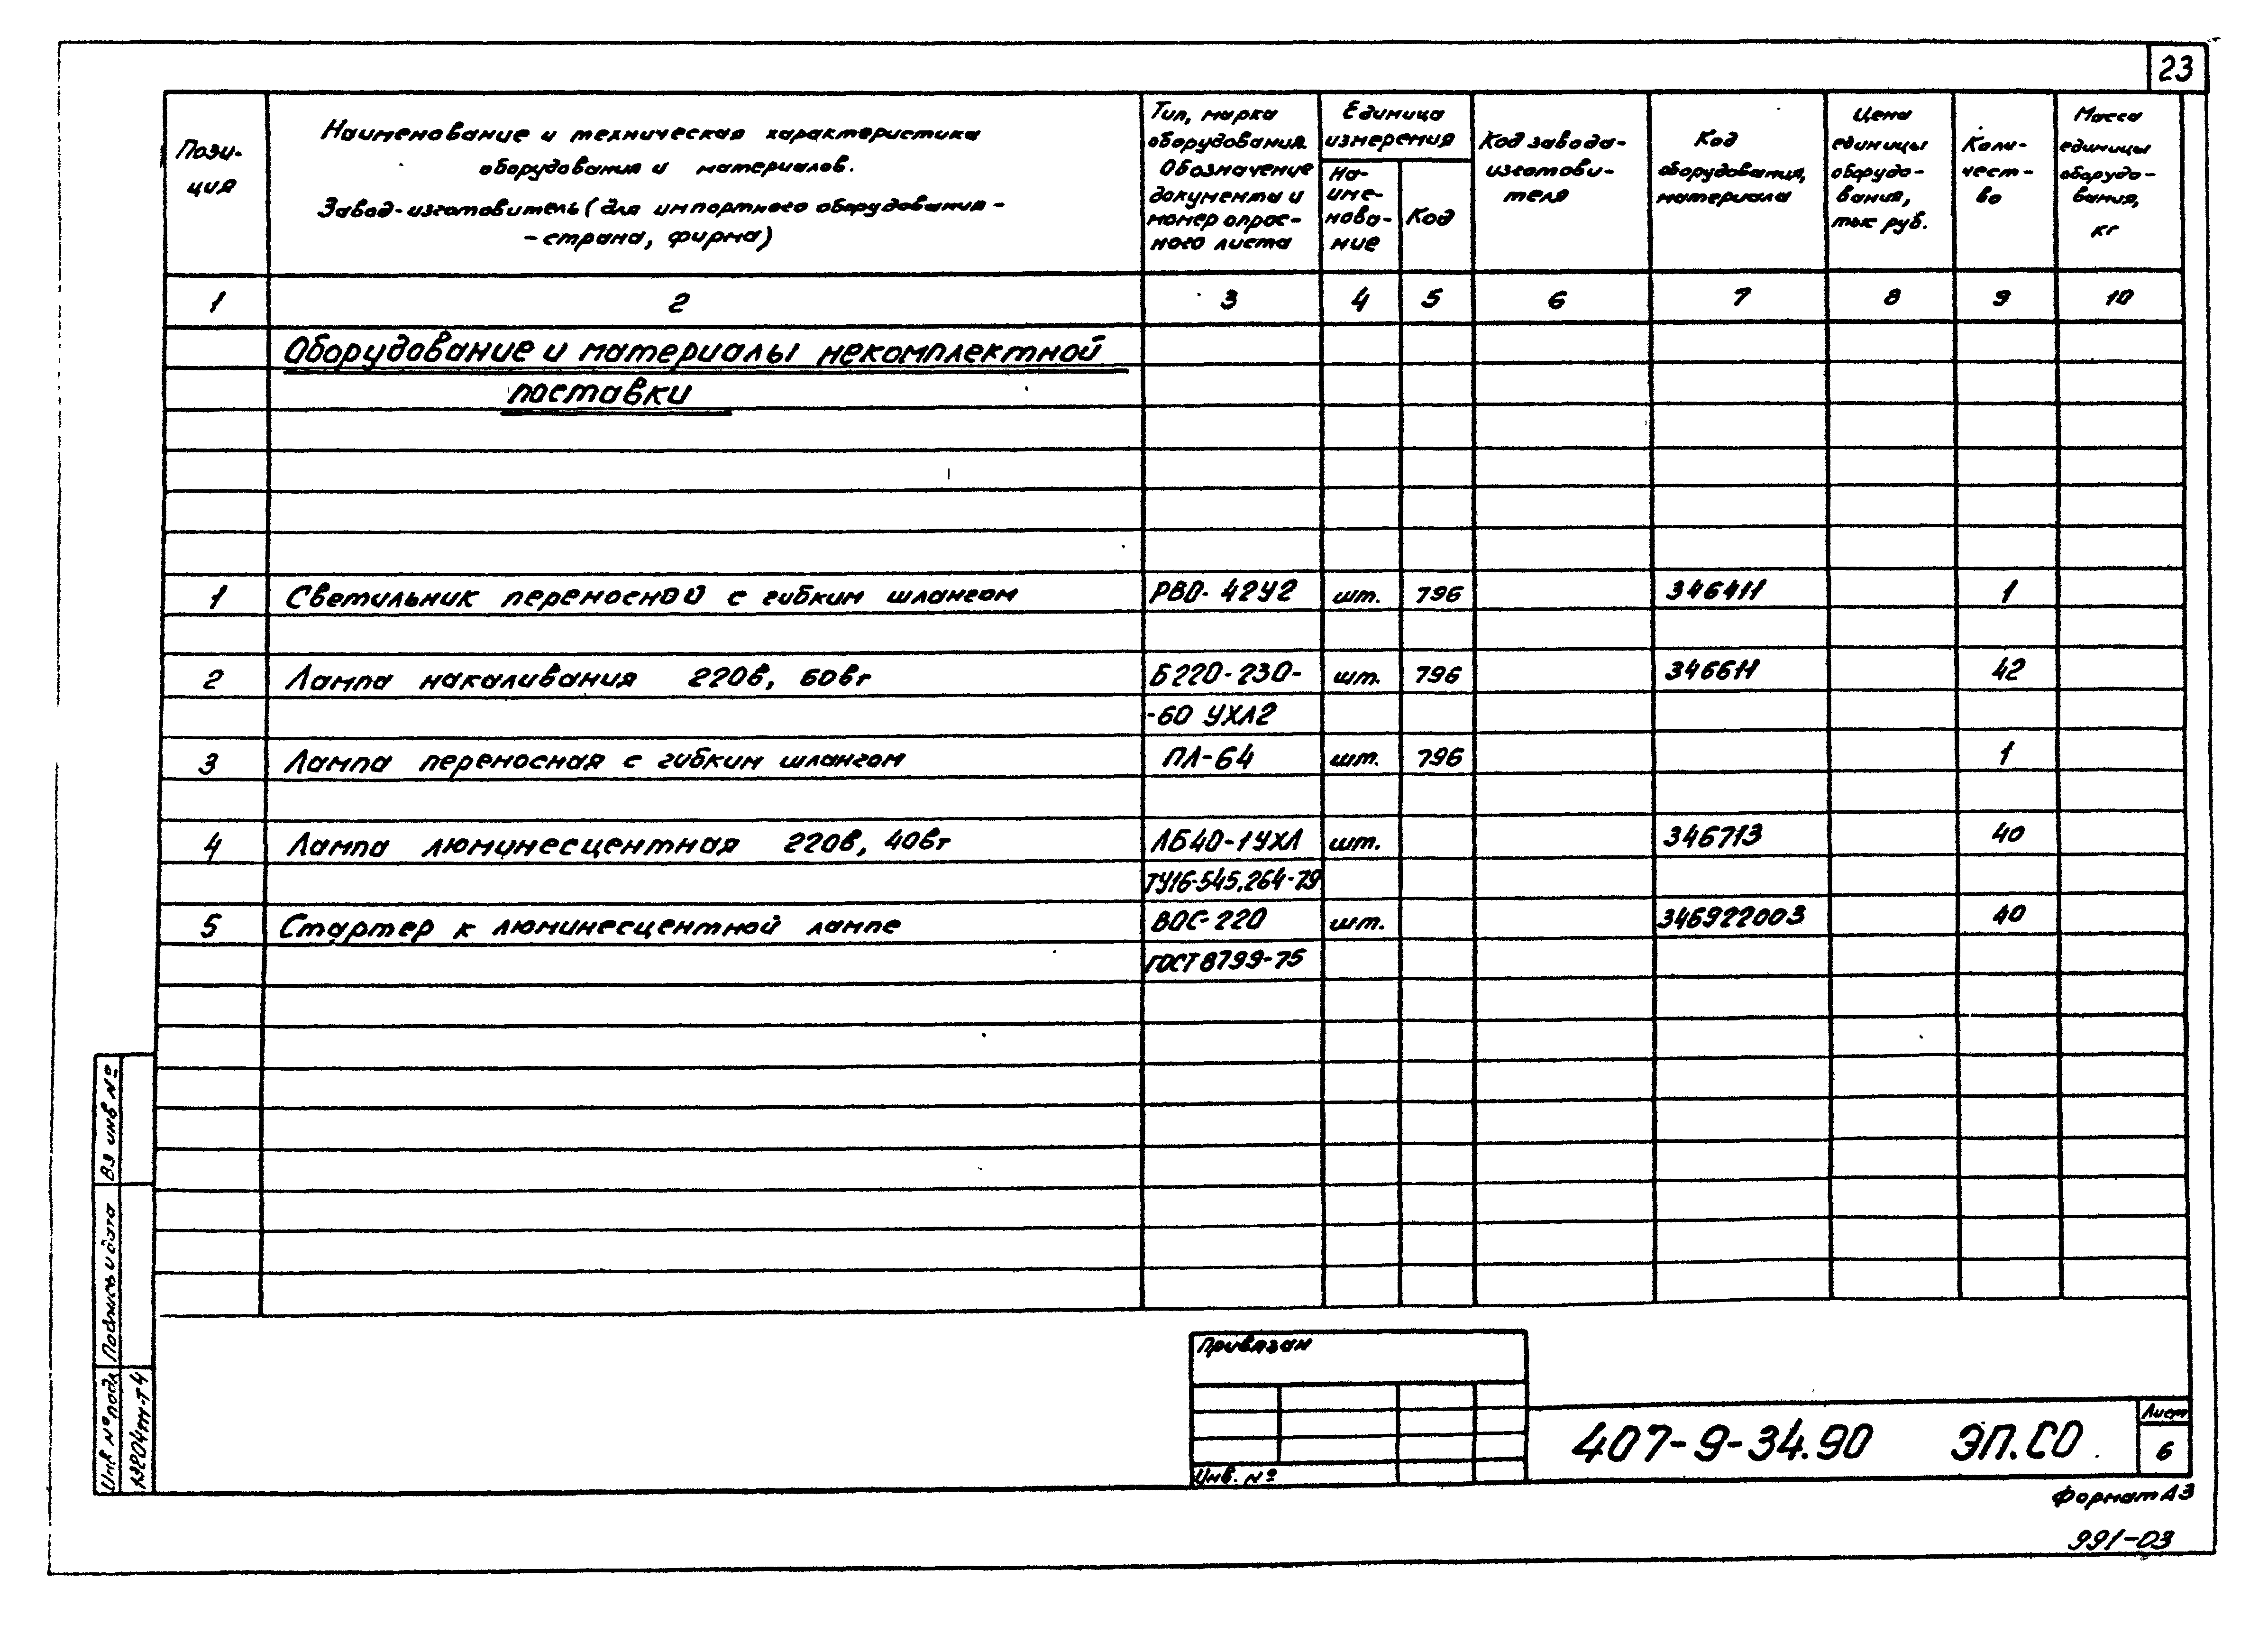 23
Пози-
ция
Наименование и техническая характеристика
оборудования и материалов.
Завод-изготовитель (для импортного оборудования -
- страна, фирма)
Тип, марка
оборудования.
Обозначение
документа и
номер опрос-
ного листа
Единица
измерения
На-
име-
нова-
ние
Код
Код завода-
изготови-
теля
Код
оборудования,
материала
Цена
единицы
оборудо-
вания,
тыс руб.
Коли-
чест-
во
Масса
единицы
оборудо-
вания,
кг
1 2 3 4 5 6 7 8 9 10
Оборудование и материалы некомплектной
поставки
1 Светильник переносной с гибким шлангом РВО-42У2 шт. 796 346411 1
2 Лампа накаливания 220в, 60вт Б220-230- шт. 796 346611 42
-60 УХЛ2
3 Лампа переносная с гибким шлангом ПЛ-64 шт. 796 1
4 Лампа люминесцентная 220в, 40вт ЛБ40-1УХЛ шт. 346713 40
ТУ16-545.264-79
5 Стартер к люминесцентной лампе ВОС-220 шт. 346922003 40
ГОСТ 8799-75
Вз инв №
Подпись и дата
Инв № подл
13204тм-т4
Привязан
Инв. №
407-9-34.90 ЭП.СО
Лист
6
Формат А3
991-03